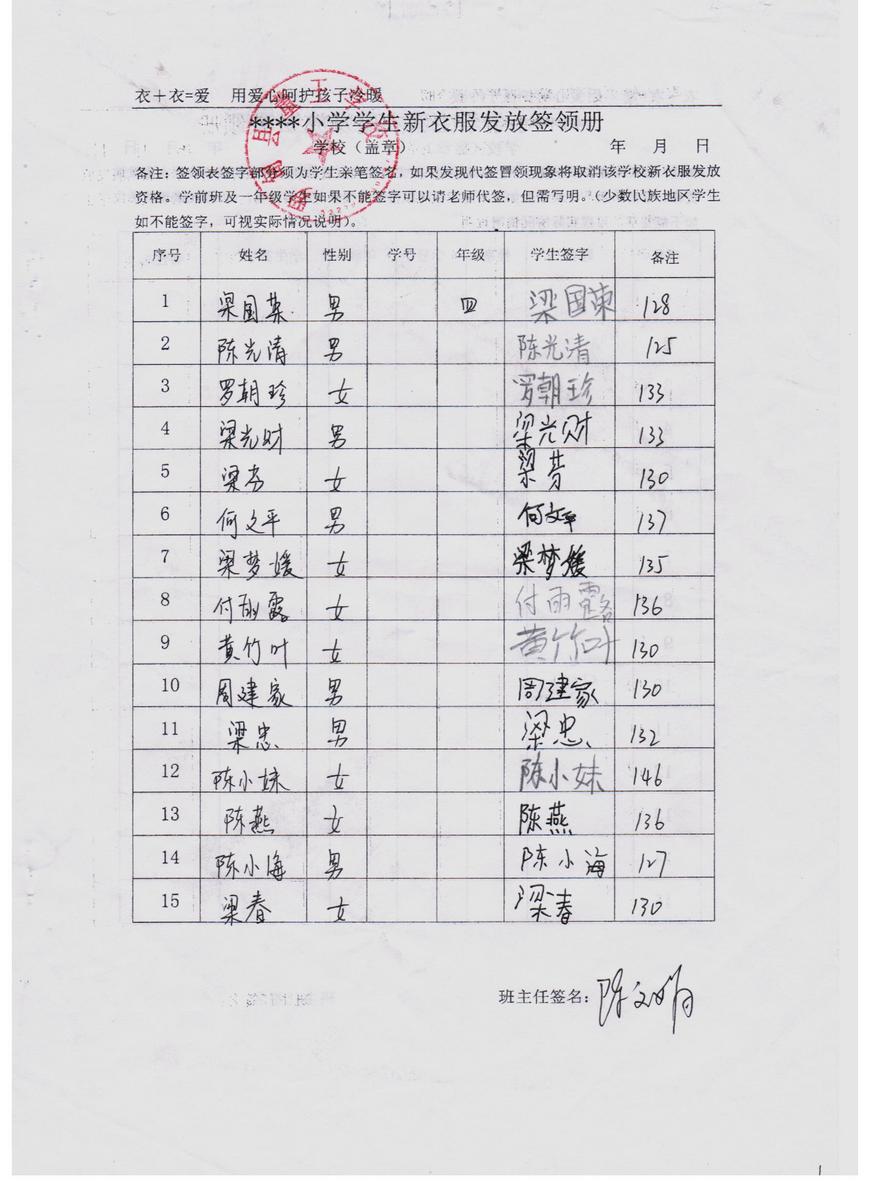 衣＋衣=爱 用爱心呵护孩子冷暖
****小学学生新衣服发放签领册
学校（盖章） 年 月 日
备注：签领表签字部分须为学生亲笔签名，如果发现代签冒领现象将取消该学校新衣服发放
资格。学前班及一年级学生如果不能签字可以请老师代签，但需写明。（少数民族地区学生
如不能签字，可视实际情况说明）。
序号 姓名 性别 学号 年级 学生签字 备注
1 梁国荣 男 四 梁国荣 128
2 陈光清 男 陈光清 125
3 罗朝珍 女 罗朝珍 133
4 梁光财 男 梁光财 133
5 梁芳 女 梁 130
6 何文平 男 何文平 137
7 梁梦媛 女 梁梦媛 135
8 付雨露 女 付雨露 136
9 黄竹叶 女 黄竹叶 130
10 周建家 男 周建家 130
11 梁忠 男 梁忠 132
12 陈小妹 女 陈小妹 146
13 陈燕 女 陈燕 136
14 陈小海 男 陈小海 127
15 梁春 女 梁春 130
班主任签名：陈文娟
1